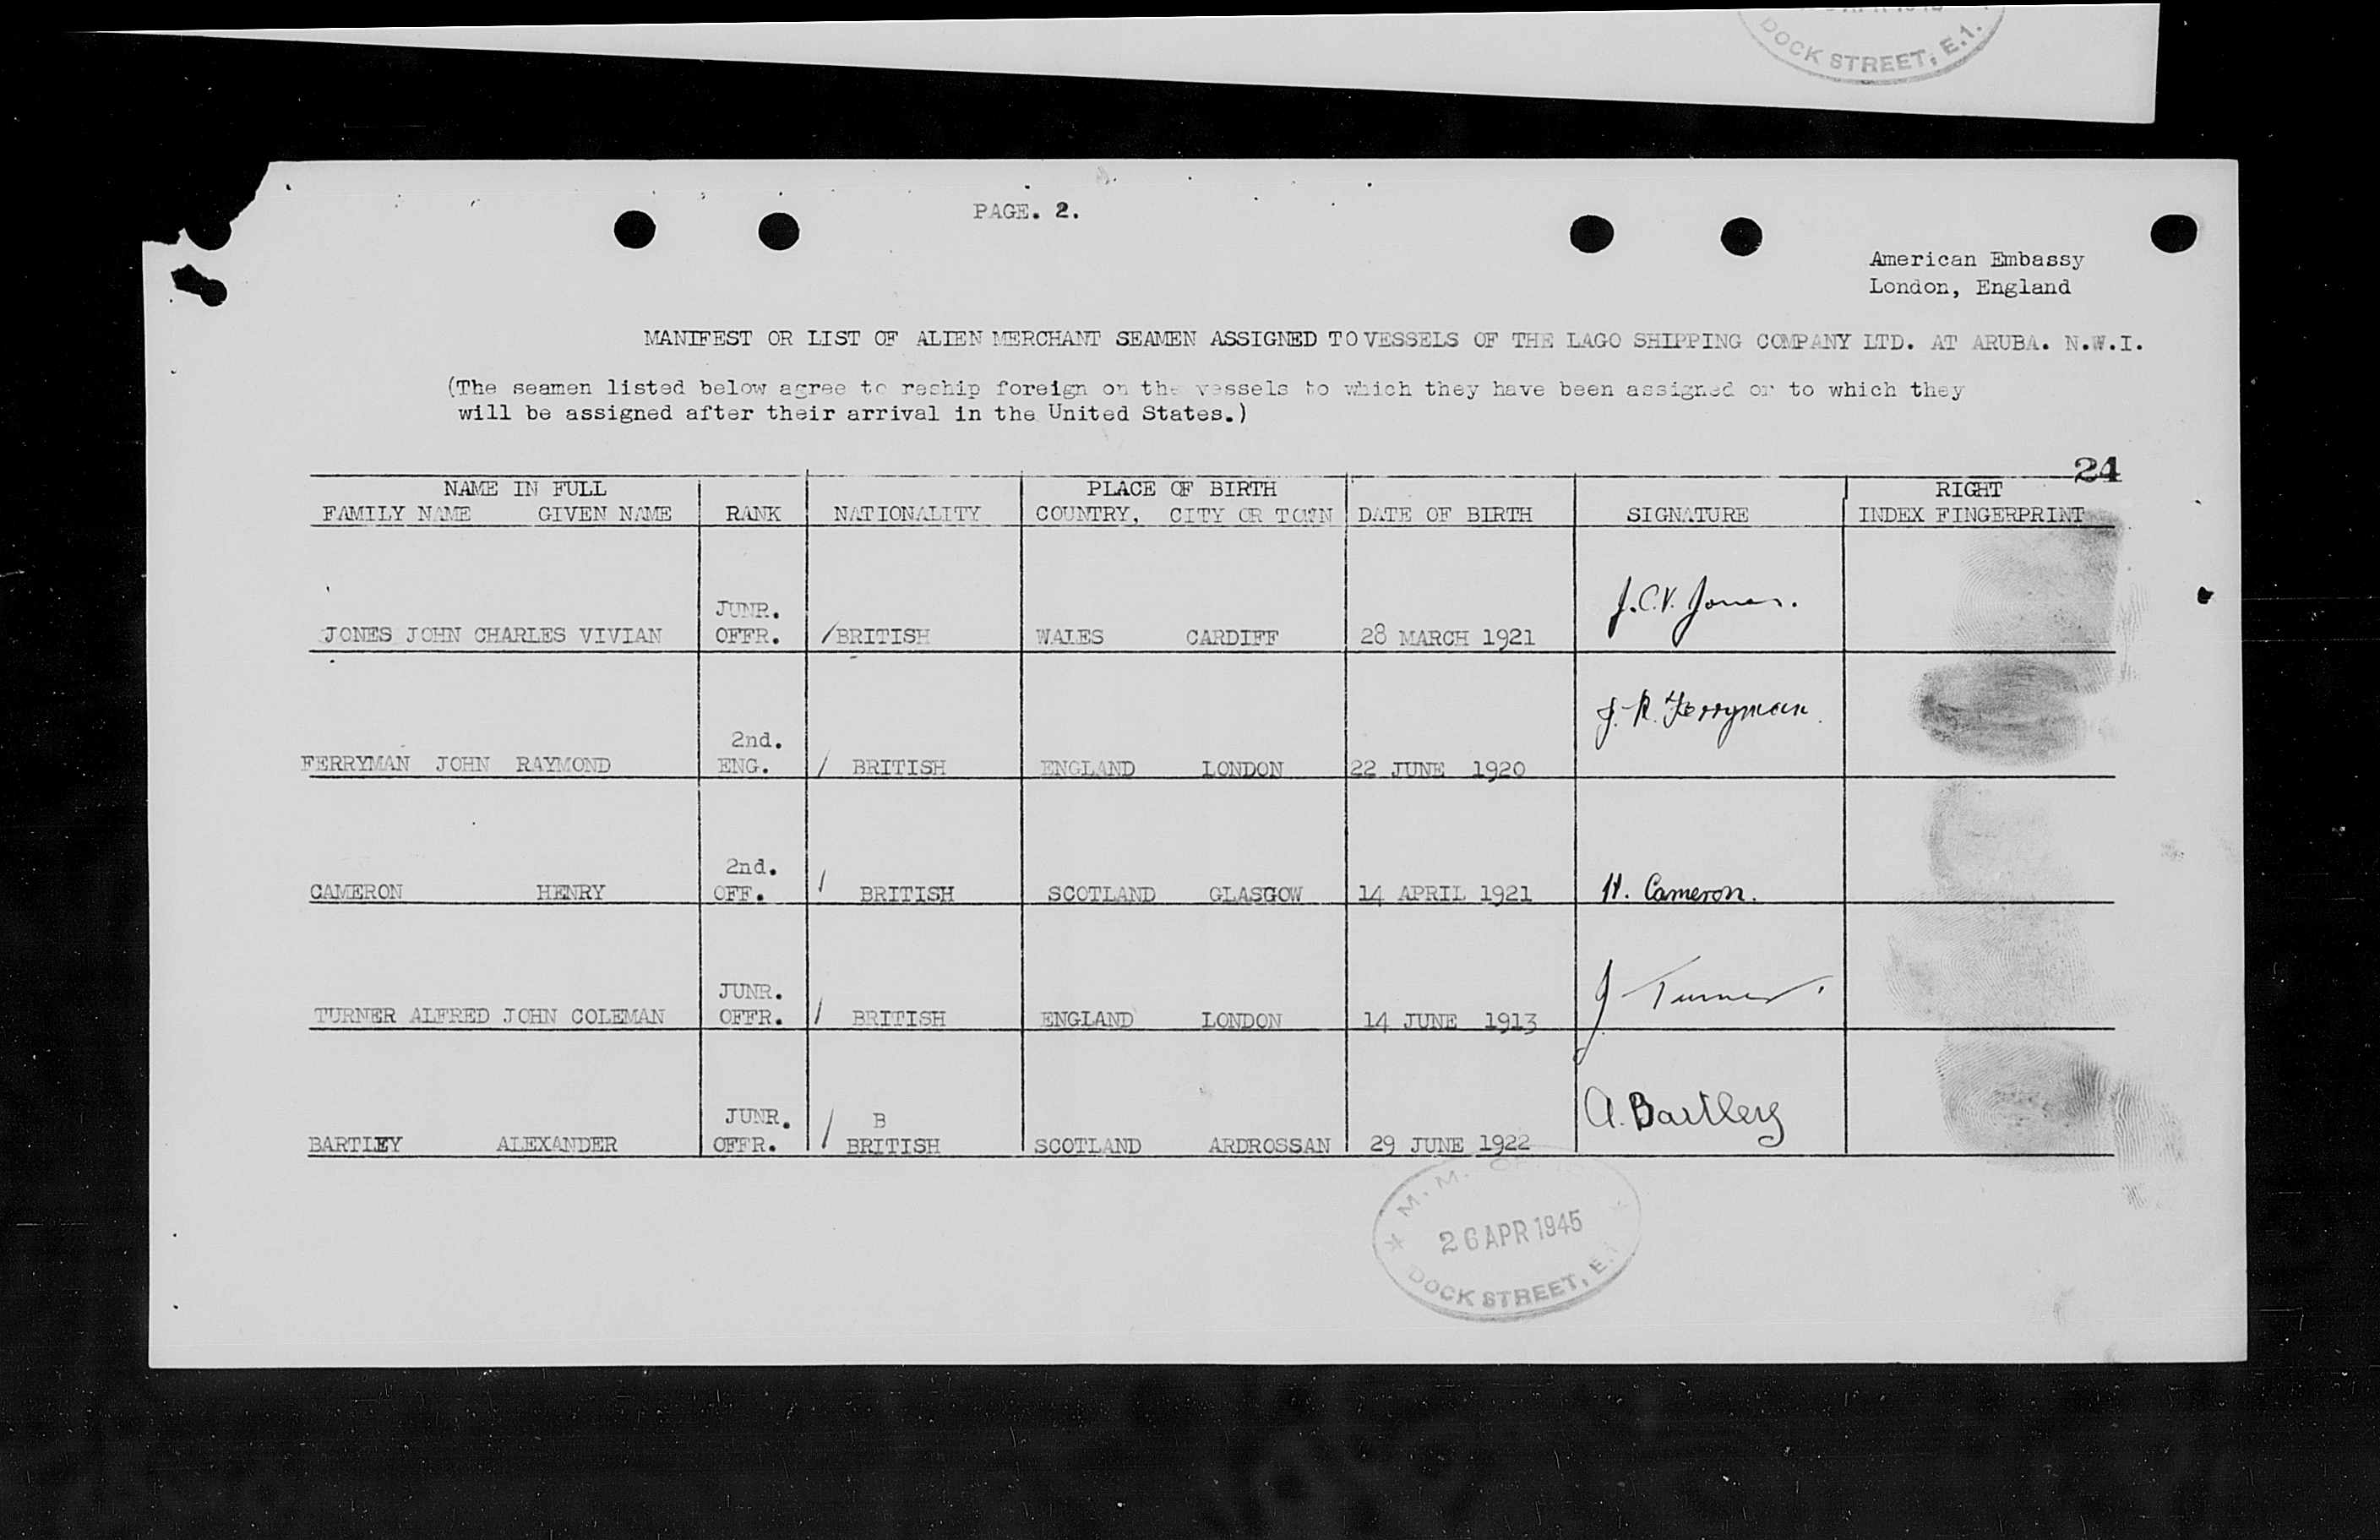 DOCK STREET, E.1.
PAGE. 2.
American Embassy
London, England
MANIFEST OR LIST OF ALIEN MERCHANT SEAMEN ASSIGNED TO VESSELS OF THE LAGO SHIPPING COMPANY LTD. AT ARUBA. N.W.I.
(The seamen listed below agree to reship foreign on the vessels to which they have been assigned or to which they
will be assigned after their arrival in the United States.)
24
NAME IN FULL PLACE OF BIRTH RIGHT
FAMILY NAME GIVEN NAME RANK NATIONALITY COUNTRY, CITY OR TOWN DATE OF BIRTH SIGNATURE INDEX FINGERPRINT
JUNR. J.C.V. Jones.
JONES JOHN CHARLES VIVIAN OFFR. /BRITISH WALES CARDIFF 28 MARCH 1921
2nd. J. R. Ferryman.
FERRYMAN JOHN RAYMOND ENG. / BRITISH ENGLAND LONDON 22 JUNE 1920
2nd.
CAMERON HENRY OFF. / BRITISH SCOTLAND GLASGOW 14 APRIL 1921 H. Cameron.
JUNR. J Turner.
TURNER ALFRED JOHN COLEMAN OFFR. / BRITISH ENGLAND LONDON 14 JUNE 1913
JUNR. B A. Bartley
BARTLEY ALEXANDER OFFR. / BRITISH SCOTLAND ARDROSSAN 29 JUNE 1922
M. M.
26 APR 1945
DOCK STREET, E.1